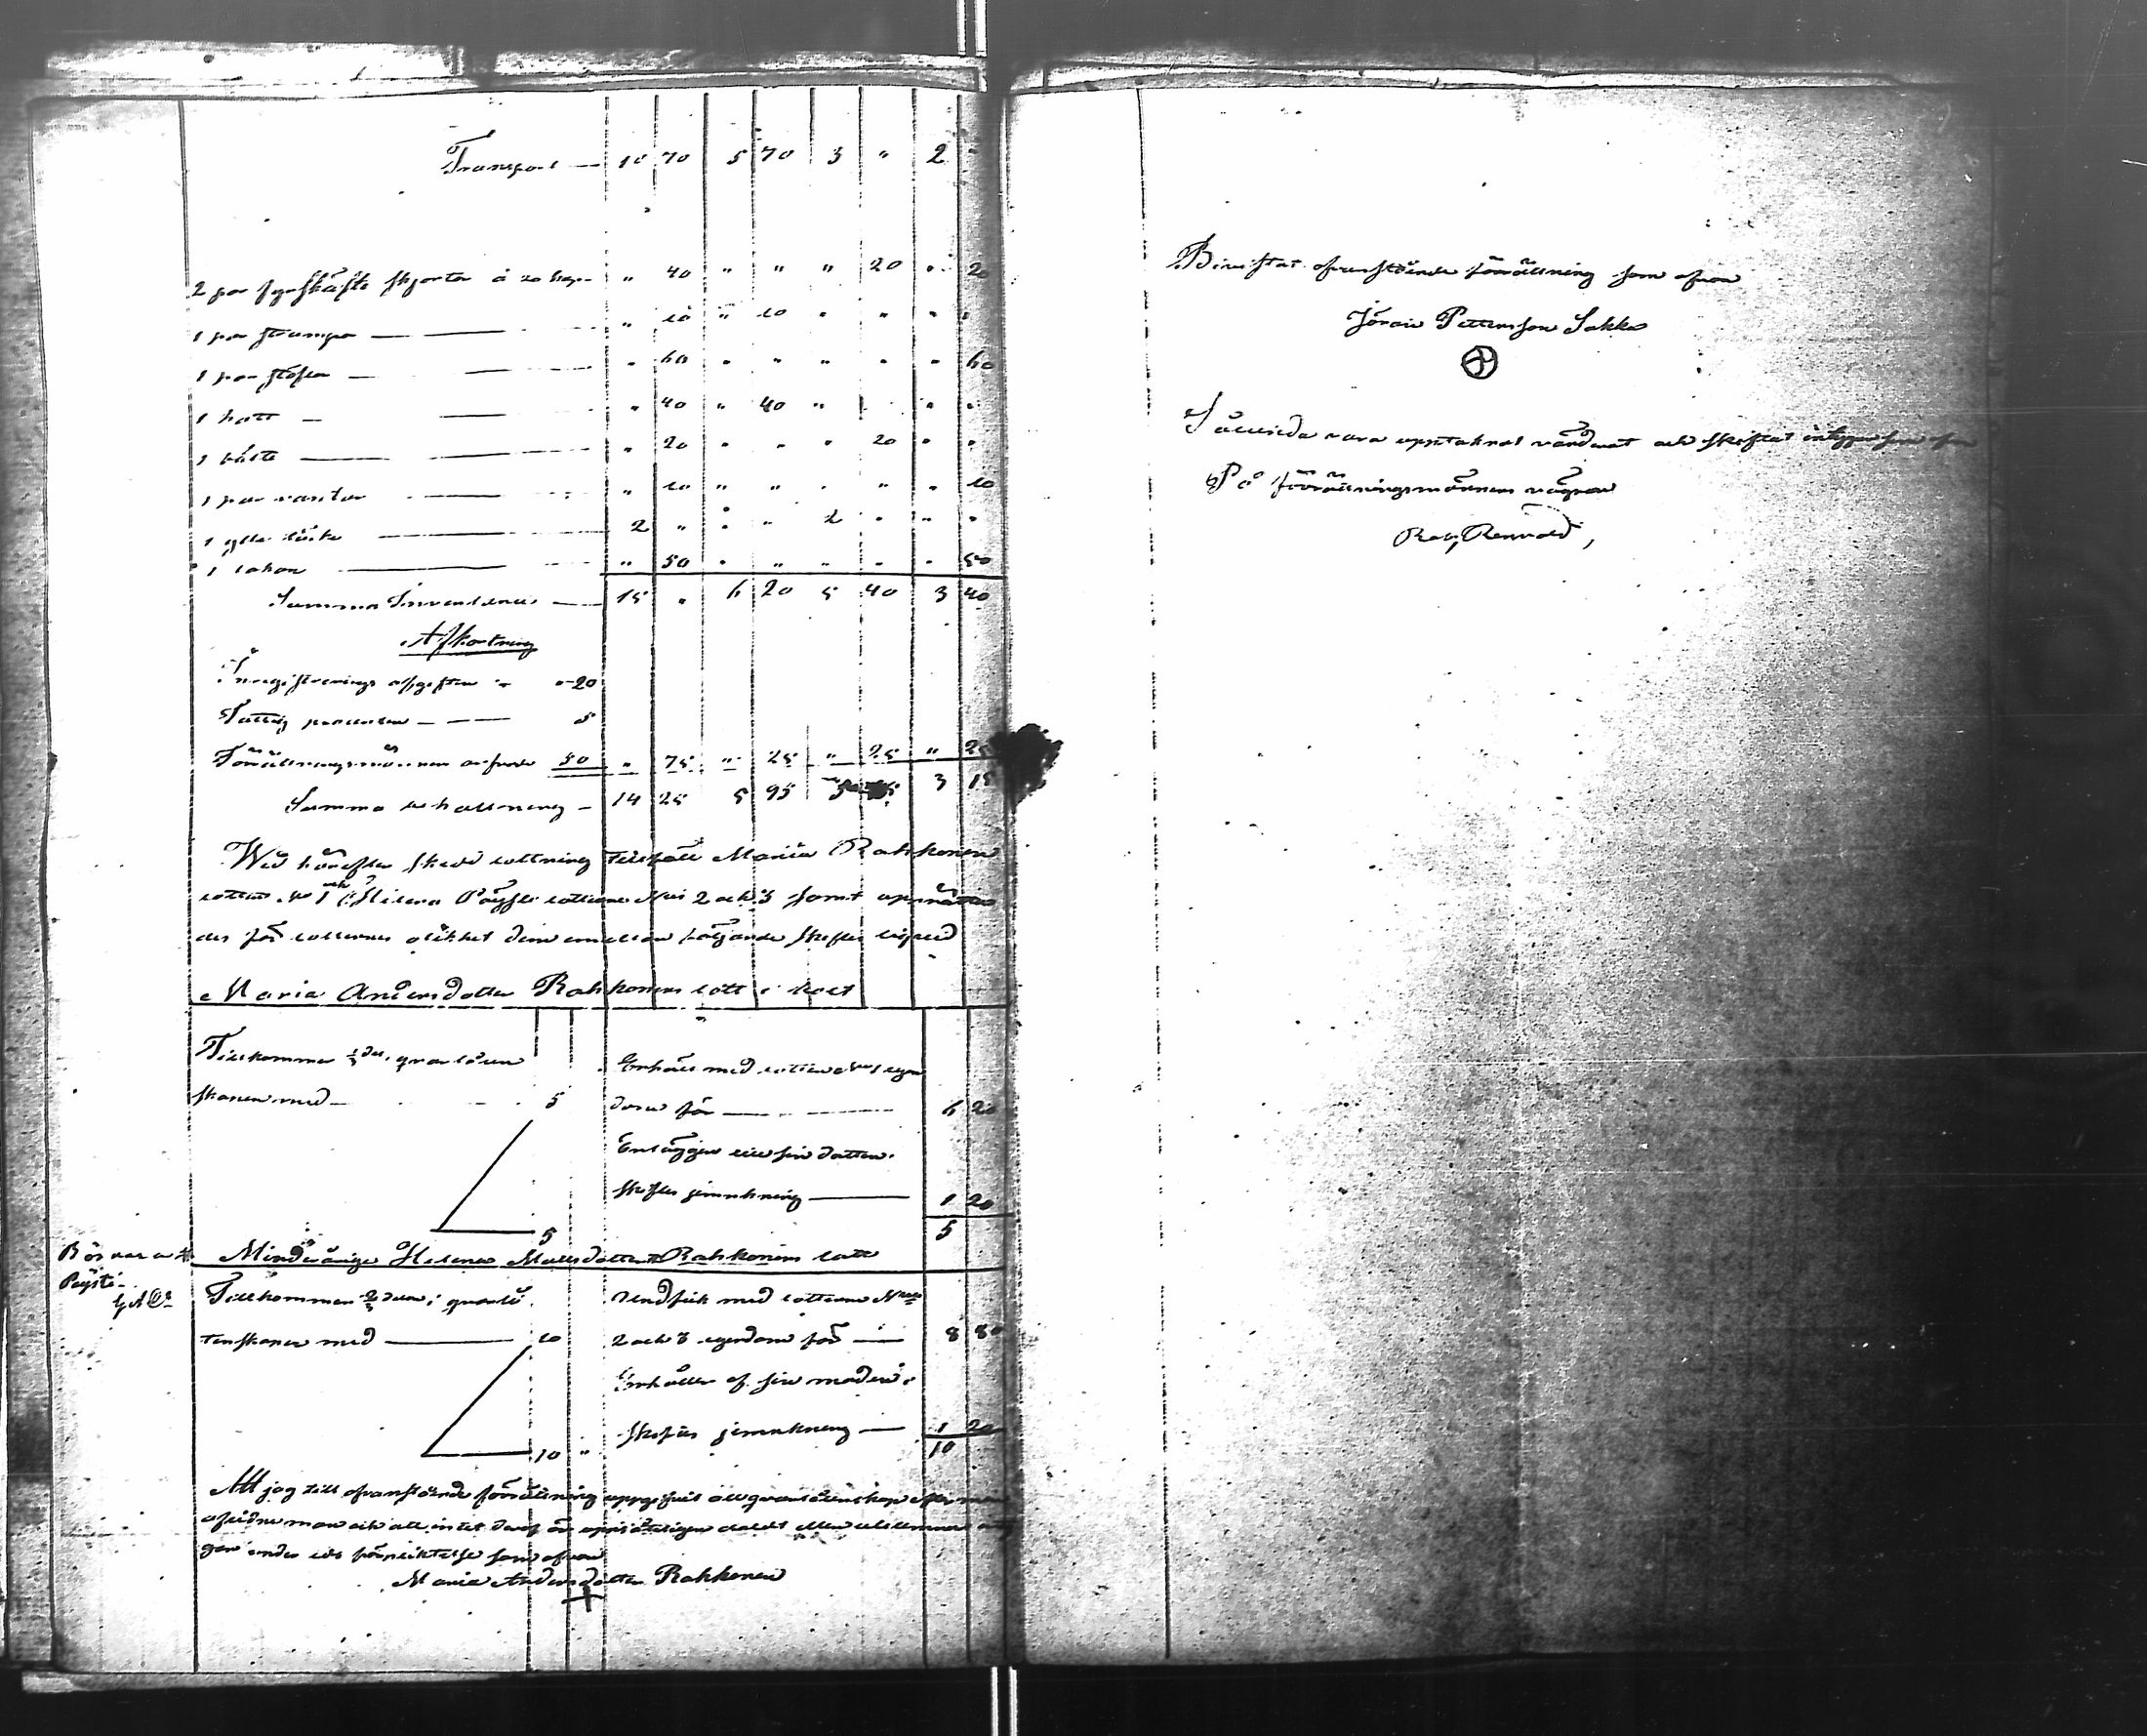 Transport — 10 70 5 70 3 " 2 "
2 par skjortor à 20 kop. " 40 " " " 20 " 20
1 par strumpor — " 20 " 20 " " " "
1 par stöflar — " 60 " " " " " 60
1 hatt — " 40 " 40 " " "
1 bälte — " 20 " " " 20 " "
1 par vantar — " 10 " " " " " 10
1 ylle — 2 " " " 2 " " "
1 lakan — " 50 " " " " " 50
Summa Inventerne — 15 " 6 20 5 40 3 40
Afkortning
Inregistrerings afgiften " 20
Fattig procenten — 5
Förrättningsmännens arfvode 50 " 75 " 25 " 25 " 25
Summa behållning — 14 25 5 95 5 15 3 15
Wid härefter skedd lottning tillföll Maria Rahkonen
lotten No 1 och Helena Pöysti lotterne No 2 och 3 samt upprättas
des för lotternes olikhet dem emellan följande skiftes
Maria Andersdotter Rahkonens lott
Tillkommer 1/3 del. qvarlåten
skapen med — 5
Erhåll med lotten No 1 egen
dom för — 6 20
Enlägger till sin dotter i
skiftes jemnkning — 1 20
5 5
Bör vara
Pöysti
Minderåriga Helena Mattsdotter Rahkonens lott
Tillkommer 2/3 delar i qvarlå
tenskapen med — 10
Undfick med lotterne No
2 och 3 egendom för — 8 80
Erhåller af sin moder i
skiftes jemnkning — 1 20
10 " 10
Att jag till ofvanstående förrättning uppgifvit all qvarlåtenskap efter min
aflidne man och att intet deraf är uppsåtligen doldt eller utelemnadt
under eds förpliktelse som ofvan
Maria Andersdotter Rahkonen
Bivistat ofvanstående förrättning som ofvan
Jöran Pettersson Sakko
Såleunda vara upptaknat värderat och skiftat intygar som ofvan
På förrättningsmännens vägnar